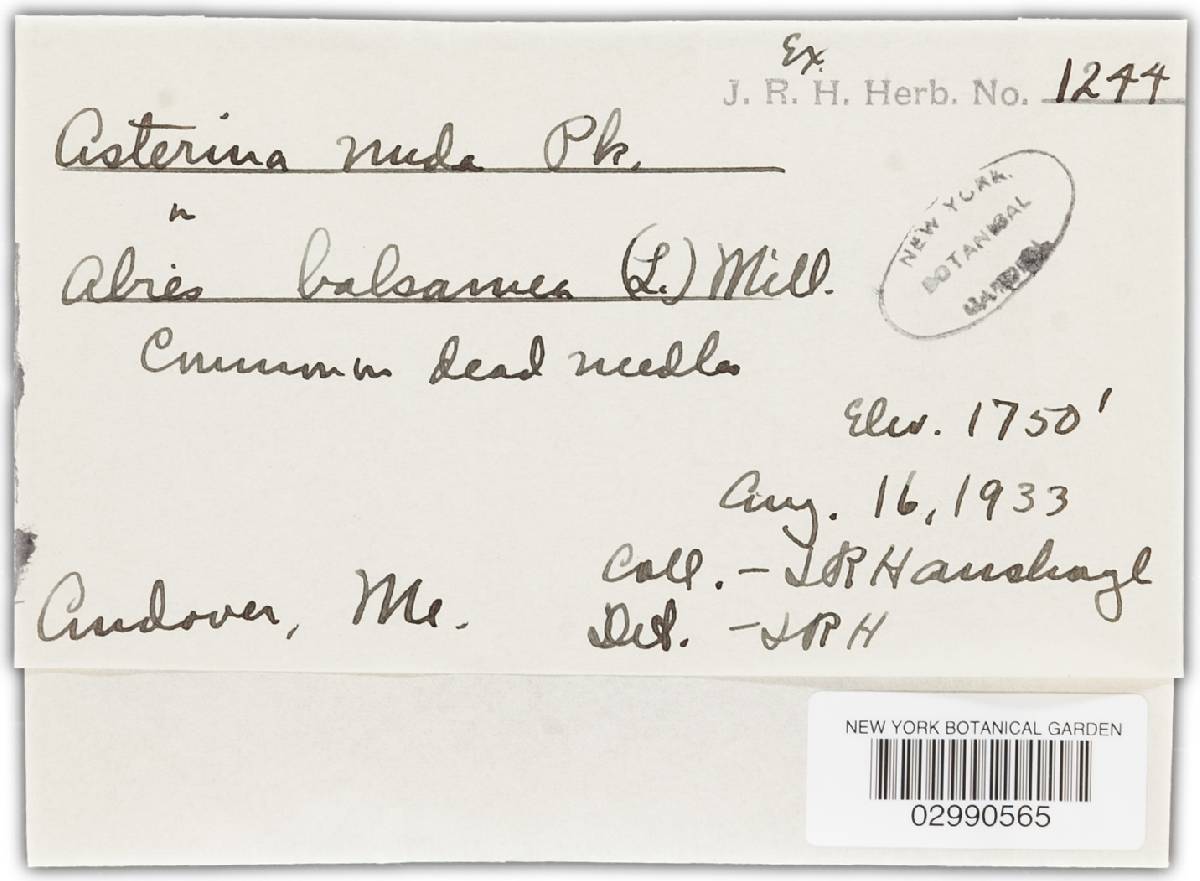 Ex.
J. R. H. Herb. No. 1244
Asterina nuda Pk.
Abies balsamea (L.) Mill.
NEW YORK
BOTANICAL
GARDEN
Common dead needles
Elev. 1750'
Aug. 16, 1933
Coll. - JRHansbrough
Andover, Me.
Det. - JRH
NEW YORK BOTANICAL GARDEN
02990565